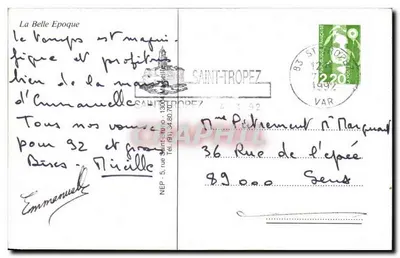 La Belle Epoque
Le temps est magni-
fique et profitons
bien de la maison
d'Emmanuelle
Tous nos voeux
pour 92 et gros
Bises - Mireille
Emmanuelle
NEP - 5, rue
SAINT-TROPEZ
SAINT-TROPEZ
83 ST
1992
VAR
2,20
Mme
36 Rue de l'épée
89000 Sens